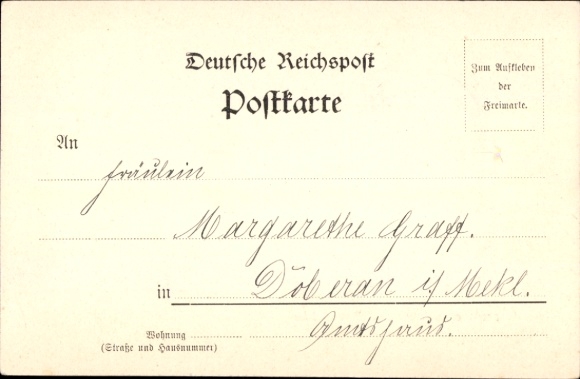 Deutsche Reichspost
Postkarte
Zum Aufkleben
der
Freimarke.
An
Fräulein
Margarethe Graff.
in Doberan i/ Mekl.
Amtshaus.
Wohnung
(Straße und Hausnummer)